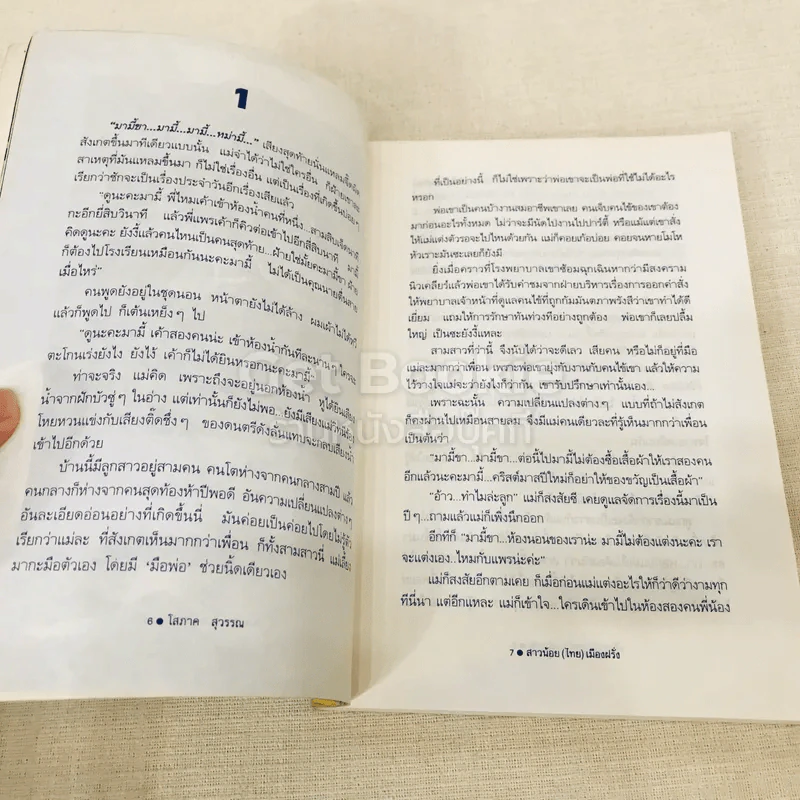 1
“มามี้ขา...มามี้...มามี้...หม่ามี้...” เสียงสุดท้ายนั่นแหลมขึ้นผิด
สังเกตขึ้นมาทีเดียวแบบนั้น แม่จำได้ว่าไม่ใช่ใครอื่น ก็ฝ้าย
สาเหตุที่มันแหลมขึ้นมา ก็ไม่ใช่เรื่องอื่น แต่เป็นเรื่องที่เกิดขึ้นบ่อยๆ
เรียกว่าชักจะเป็นเรื่องประจำวันอีกเรื่องเสียแล้ว
“ดูนะคะมามี้ พี่ไหมเค้าเข้าห้องน้ำคนที่หนึ่ง...สามสิบเจ็ดนาที
กะอีกยี่สิบวินาที แล้วพี่แพรเค้าก็คิวต่อเข้าไปอีกสี่สิบนาที มามี้
คิดดูนะคะ ยังงี้แล้วคนไหนเป็นคนสุดท้าย...ฝ้ายใช่มั้ยคะมามี้ขา ฝ้าย
ก็ต้องไปโรงเรียนเหมือนกันนะคะมามี้ ไม่ได้เป็นคุณนายตื่นสาย
เมื่อไหร่”
คนพูดยังอยู่ในชุดนอน หน้าตายังไม่ได้ล้าง ผมเผ้าไม่ได้หวี
แล้วก็พูดไป ก็เต้นเหยิงๆ ไป
“ดูนะคะมามี้ เค้าสองคนน่ะ เข้าห้องน้ำกันทีละนานๆ ใครจะ
ตะโกนเร่งยังไง ยังไง้ เค้าก็ไม่ได้ยินหรอกนะคะมามี้”
ท่าจะจริง แม่คิด เพราะถึงจะอยู่นอกห้องน้ำ หูได้ยินเสียง
น้ำจากฝักบัวซู่ๆ ในอ่าง แต่เท่านั้นก็ยังไม่พอ...ยังมีเสียง
โหยหวนแข่งกับเสียงตี๊ดชึ่งๆ ของดนตรีดังลั่นแทบจะกลบเสียงน้ำ
เข้าไปอีกด้วย
บ้านนี้มีลูกสาวอยู่สามคน คนโตห่างจากคนกลางสามปี แล้ว
คนกลางก็ห่างจากคนสุดท้องห้าปีพอดี อันความเปลี่ยนแปลงต่างๆ
อันละเอียดอ่อนอย่างที่เกิดขึ้นนี่ มันค่อยเป็นค่อยไปโดยไม่รู้ตัว
เรียกว่าแม่ละ ที่สังเกตเห็นมากกว่าเพื่อน ก็ทั้งสามสาวนี่ แม่เลี้ยง
มากะมือตัวเอง โดยมี ‘มือพ่อ’ ช่วยนิ้ดเดียวเอง
6 ● โสภาค สุวรรณ
ที่เป็นอย่างนี้ ก็ไม่ใช่เพราะว่าพ่อเขาจะเป็นพ่อที่ใช้ไม่ได้อะไร
หรอก
พ่อเขาเป็นคนบ้างานสมอาชีพเขาเลย คนเจ็บคนไข้ของเขาต้อง
มาก่อนอะไรทั้งหมด ไม่ว่าจะมีนัดไปงานไปปาร์ตี้ หรือแม้แต่เขาสั่ง
ให้แม่แต่งตัวรอจะไปไหนด้วยกัน แม่ก็คอยเก้อบ่อย คอยจนหายโมโห
หัวเราะมันซะเลยก็ยังมี
ยิ่งเมื่อคราวที่โรงพยาบาลเขาซ้อมฉุกเฉินหากว่ามีสงคราม
นิวเคลียร์แล้วพ่อเขาได้คำชมจากฝ่ายบริหารเรื่องการออกคำสั่ง
ให้พยาบาลเจ้าหน้าที่ดูแลคนไข้ที่ถูกกัมมันตภาพรังสีว่าเขาทำได้ดี
เยี่ยม แถมให้การรักษาทันท่วงทีอย่างถูกต้อง พ่อเขาก็เลยปลื้ม
ใหญ่ เป็นซะยังงี้แหละ
สามสาวที่ว่านี้ จึงนับได้ว่าจะดีเลว เสียคน หรือไม่ก็อยู่ที่มือ
แม่ละมากกว่าเพื่อน เพราะพ่อเขายุ่งกับงานกับคนไข้เขา แล้วให้ความ
ไว้วางใจแม่จะว่ายังไงก็ว่ากัน เขารับปรึกษาเท่านั้นเอง...
เพราะฉะนั้น ความเปลี่ยนแปลงต่างๆ แบบที่ถ้าไม่สังเกต
ก็คงผ่านไปเหมือนสายลม จึงมีแม่คนเดียวละที่รู้เห็นมากกว่าเพื่อน
เป็นต้นว่า
“มามี้ขา...มามี้ขา...ต่อนี้ไปมามี้ไม่ต้องซื้อเสื้อผ้าให้เราสองคน
อีกแล้วนะคะมามี้...คริสต์มาสปีใหม่ก็อย่าให้ของขวัญเป็นเสื้อผ้า”
“อ้าว...ทำไมล่ะลูก” แม่ก็สงสัยซี เคยดูแลจัดการเรื่องนี้มาเป็น
ปีๆ...ถามแล้วแม่ก็เพิ่งนึกออก
อีกทีก็ “มามี้ขา...ห้องนอนของเราน่ะ มามี้ไม่ต้องแต่งนะคะ เรา
จะแต่งเอง...ไหมกับแพรน่ะค่ะ”
แม่ก็สงสัยอีกตามเคย ก็เมื่อก่อนแม่แต่งอะไรให้ก็ว่าดีว่างามทุก
ทีนี่นา แต่อีกแหละ แม่ก็เข้าใจ...ใครเดินเข้าไปในห้องสองคนพี่น้อง
7 ● สาวน้อย (ไทย) เมืองฝรั่ง